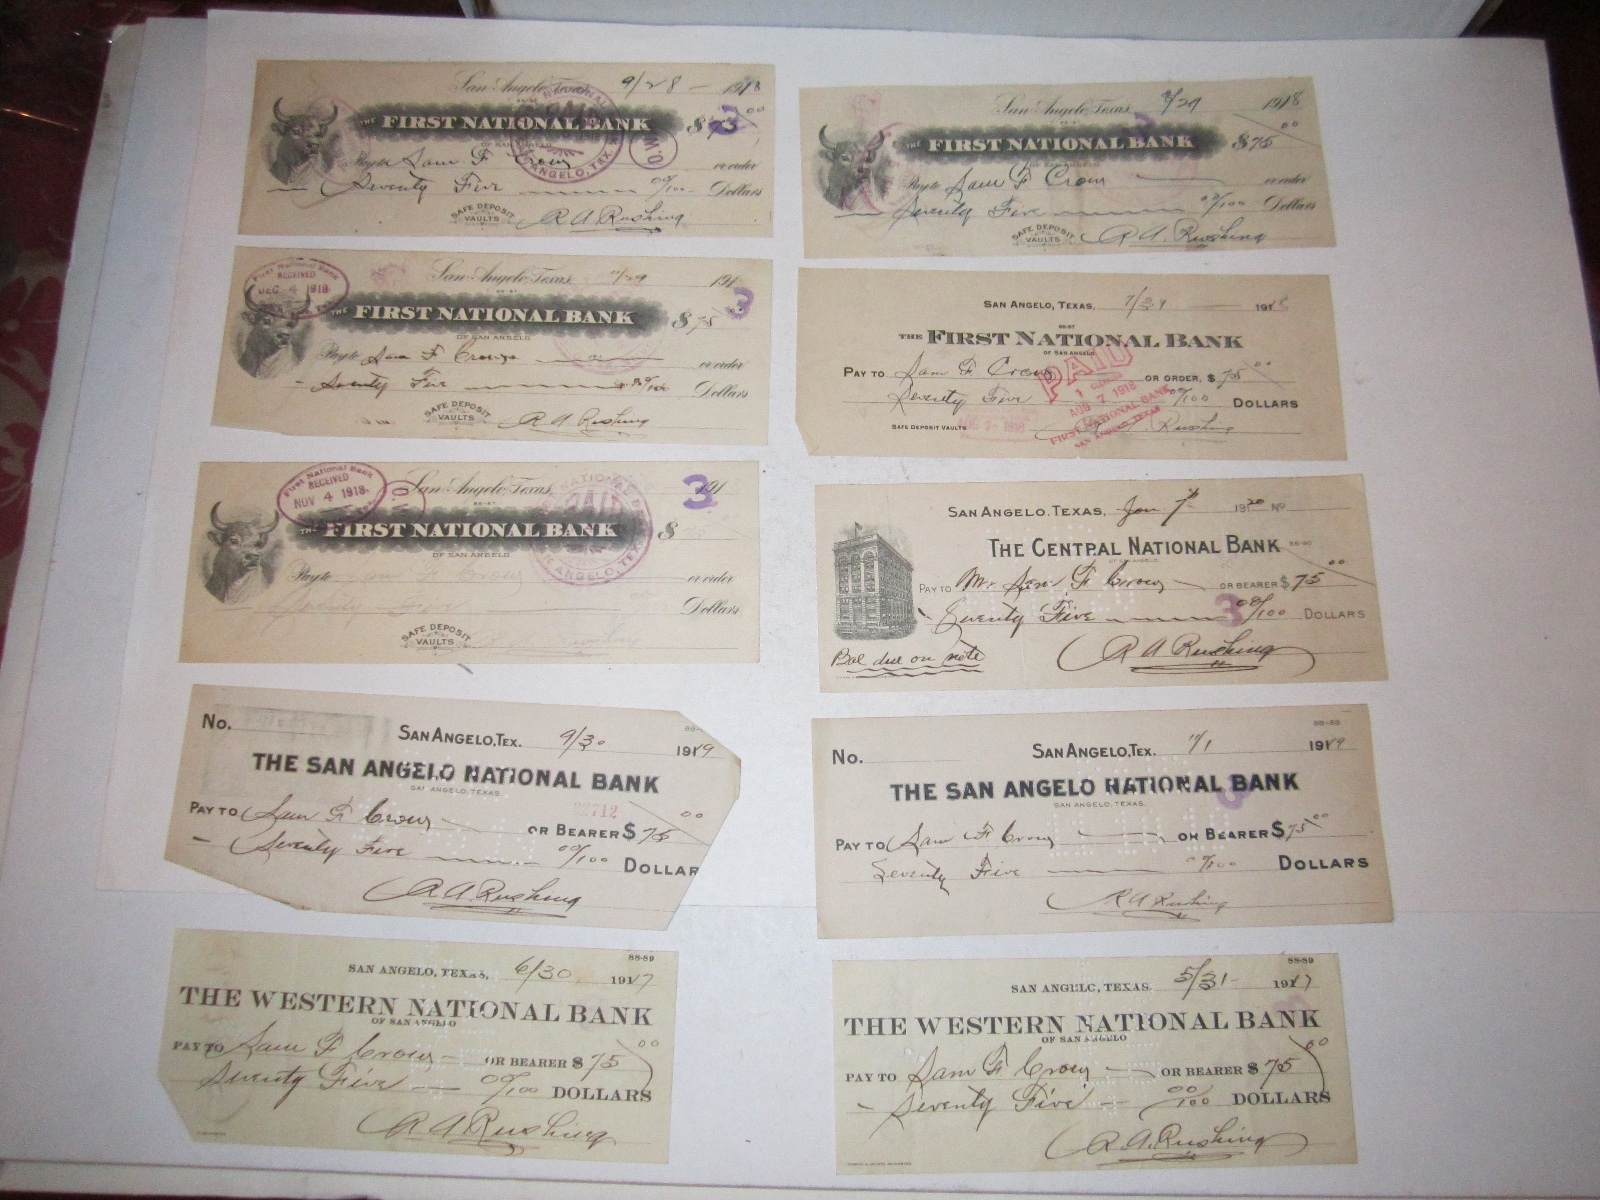 San Angelo, Texas, 9/28 - 1918
THE FIRST NATIONAL BANK $75 00
OF SAN ANGELO
Pay to Sam F Crow or order
Seventy Five 00/100 Dollars
SAFE DEPOSIT VAULTS R A Rushing
O.W.
3
San Angelo, Texas, 1918
THE FIRST NATIONAL BANK $75 00
OF SAN ANGELO
Pay to Sam F Crow or order
Seventy Five 00/100 Dollars
SAFE DEPOSIT VAULTS R A. Rushing
First National Bank
RECEIVED
DEC 4 1918
San Angelo, Texas, 11/29 191
3
THE FIRST NATIONAL BANK $75
OF SAN ANGELO
Pay to Sam F Crow or order
Seventy Five Dollars
SAFE DEPOSIT VAULTS R A Rushing
SAN ANGELO, TEXAS, 7/31 1918
88-87
THE FIRST NATIONAL BANK
OF SAN ANGELO
PAY TO Sam F. Crow OR ORDER, $75 00
Seventy Five 00/100 DOLLARS
SAFE DEPOSIT VAULTS Rushing
PAID
AUG 7 1918
FIRST NATIONAL BANK
SAN ANGELO TEXAS
First National Bank
RECEIVED
NOV 4 1918
San Angelo, Texas, 191
3
THE FIRST NATIONAL BANK $
OF SAN ANGELO
Pay to Sam F Crow or order
Dollars
SAFE DEPOSIT VAULTS
SAN ANGELO, TEXAS, Jan 1920 No
THE CENTRAL NATIONAL BANK 88-90
OF SAN ANGELO
PAY TO Mr. Sam F Crow OR BEARER $75 00
Seventy Five 00/100 DOLLARS
3
Bal due on note R A Rushing
No. SAN ANGELO, TEX. 9/30 1919
88-
THE SAN ANGELO NATIONAL BANK
SAN ANGELO, TEXAS.
PAY TO Sam F Crow OR BEARER $75 00
Seventy Five 00/100 DOLLAR
R A. Rushing
88-88
No. SAN ANGELO, TEX. 11/1 1919
THE SAN ANGELO NATIONAL BANK
SAN ANGELO, TEXAS.
PAY TO Sam F Crow OR BEARER $75 00
Seventy Five 00/100 DOLLARS
R A Rushing
88-89
SAN ANGELO, TEXAS, 6/30 1917
THE WESTERN NATIONAL BANK
OF SAN ANGELO
PAY TO Sam F Crow OR BEARER $75 00
Seventy Five 00/100 DOLLARS
R A Rushing
88-89
SAN ANGELO, TEXAS. 5/31 - 1917
THE WESTERN NATIONAL BANK
OF SAN ANGELO
PAY TO Sam F Crow OR BEARER $75 00
Seventy Five 00/100 DOLLARS
R A. Rushing